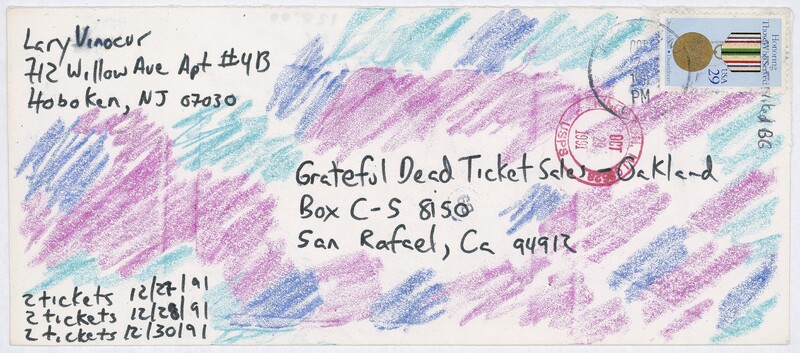 Lary Vinocur
712 Willow Ave Apt #4B
Hoboken, NJ 07030
Honoring
Those Who Served
USA
29
OCT
PM
USPS
OCT
1991
Grateful Dead Ticket Sales - Oakland
Box C-S 8150
San Rafael, Ca 94912
2 tickets 12/27/91
2 tickets 12/28/91
2 tickets 12/30/91